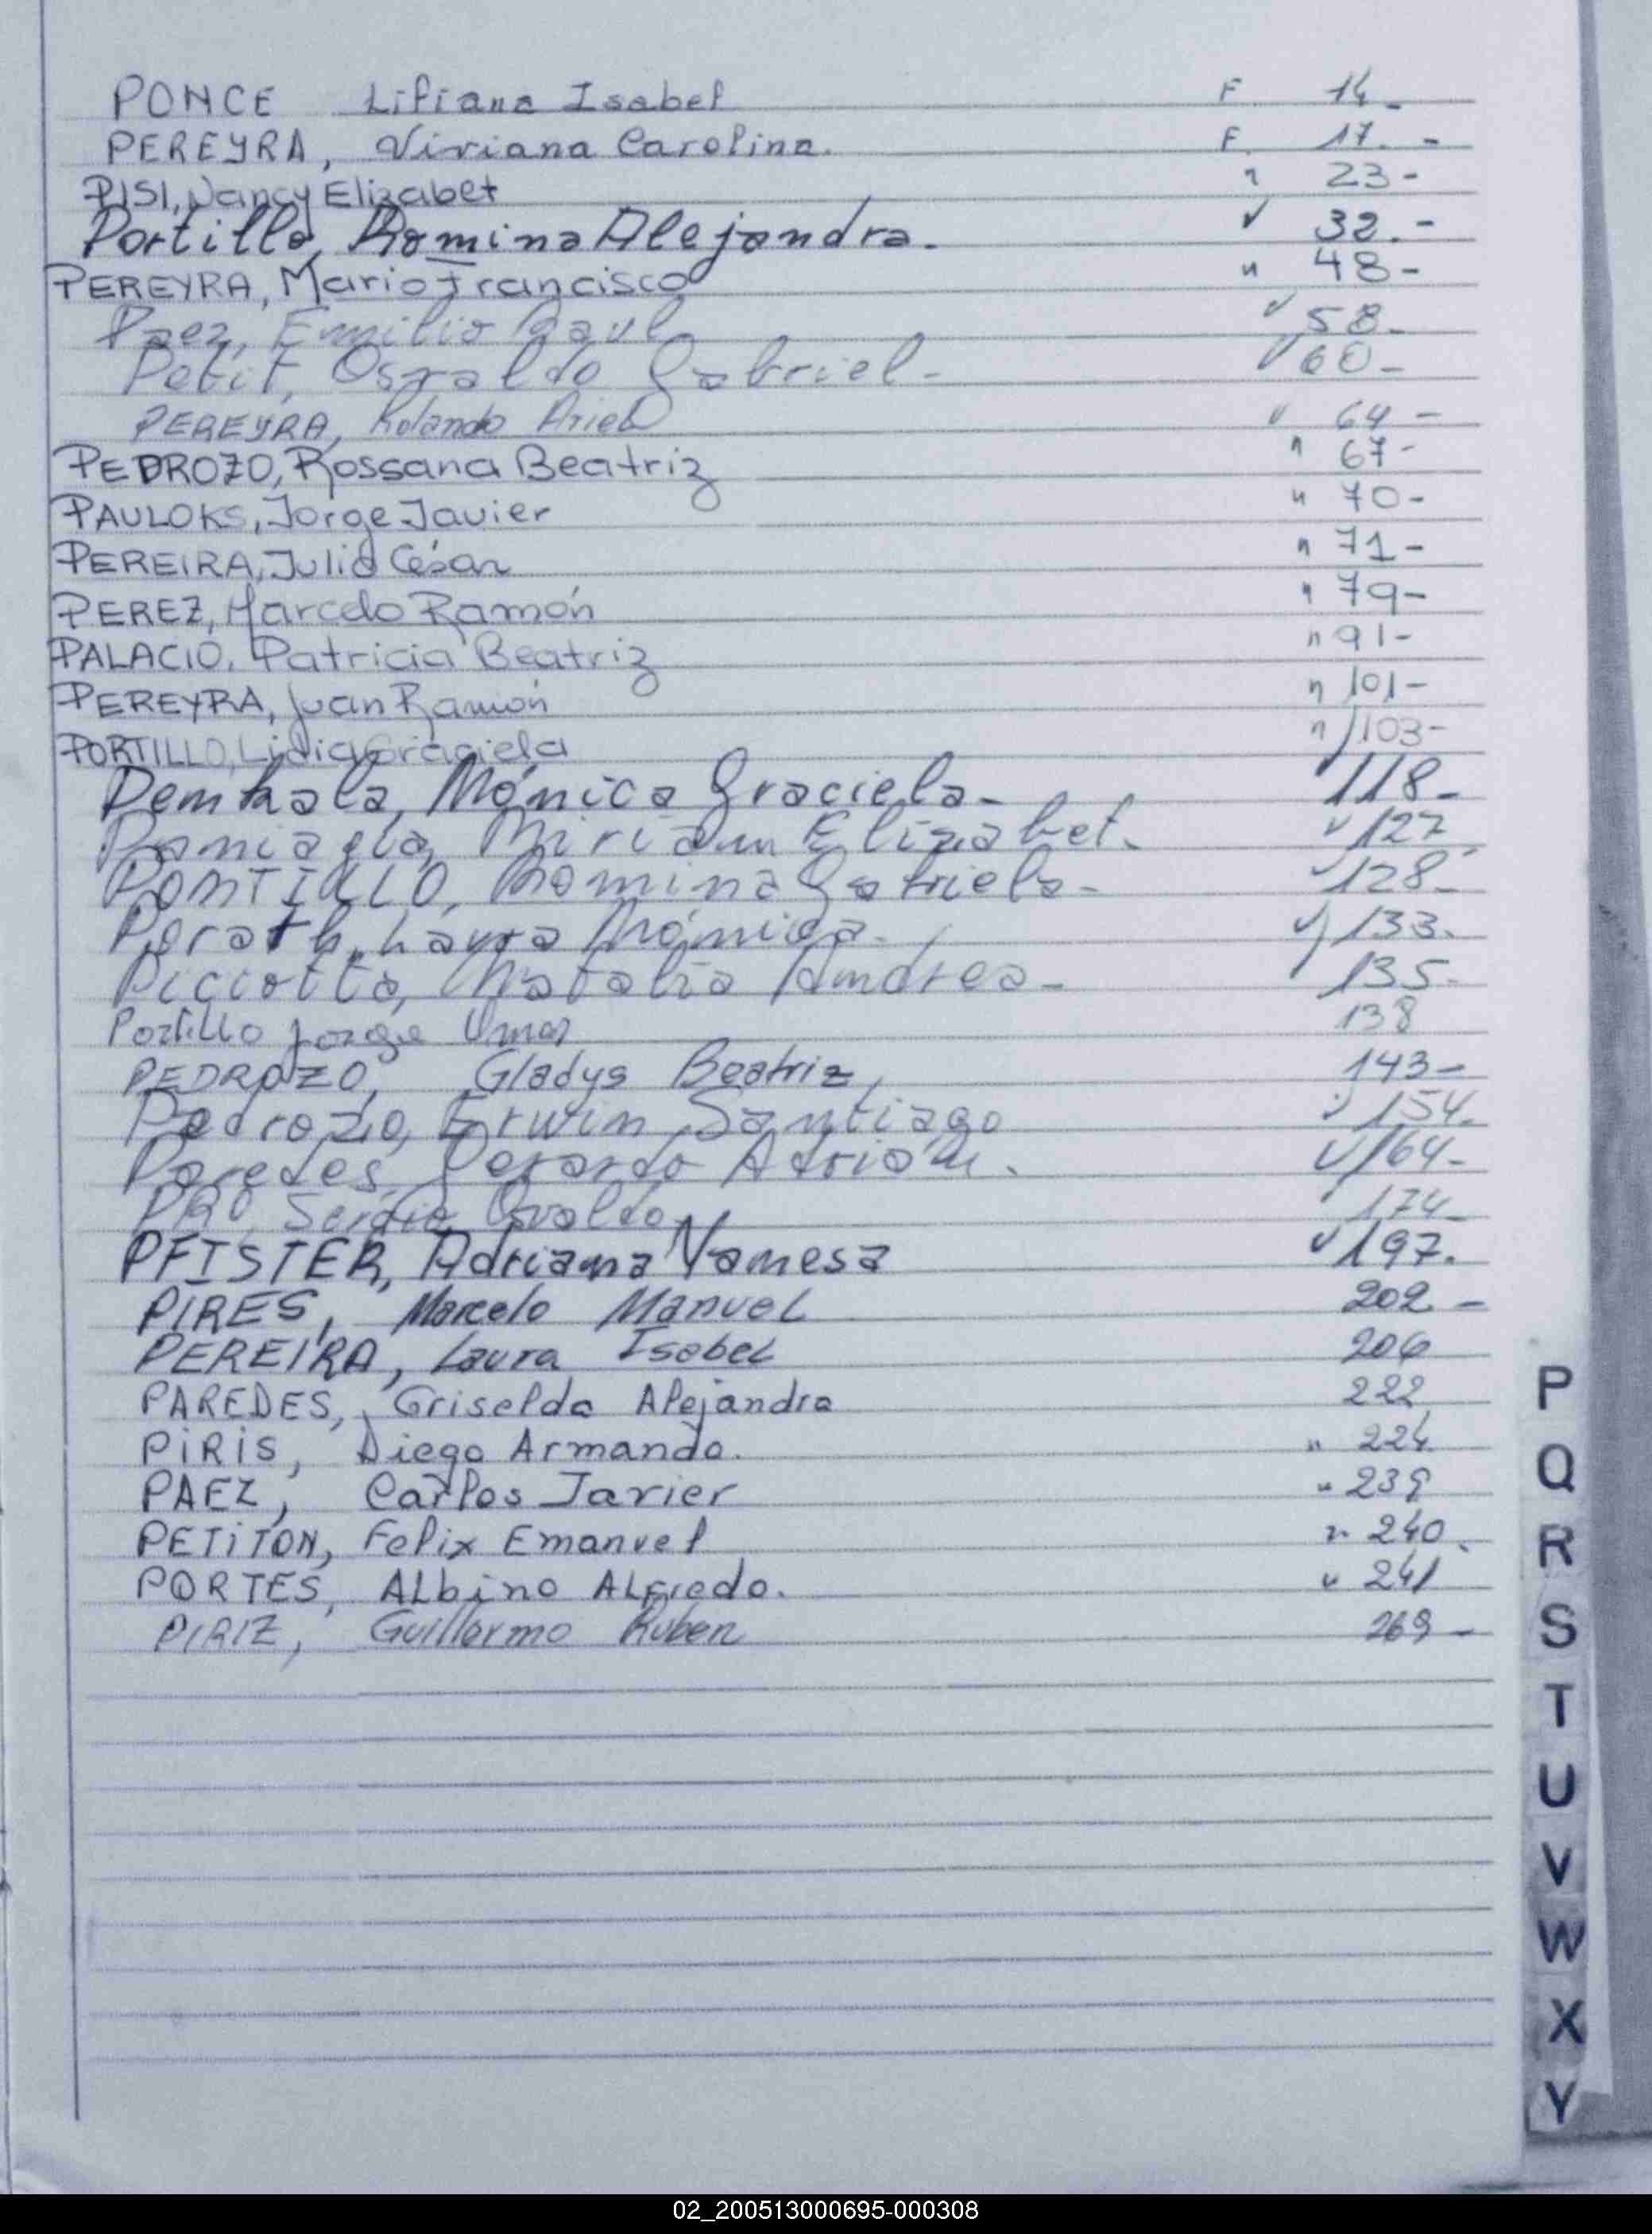 PONCE Liliana Isabel F 14-
PEREYRA, Viviana Carolina. F. 17.-
PISI, Nancy Elizabet " 23-
Portillo, Romina Alejandra. " 32.-
PEREYRA, Mario Francisco " 48-
Paez, Emilio Raul " 58-
Petit, Osvaldo Gabriel- " 60-
PEREYRA, Rolando Ariel " 64-
PEDROZO, Rossana Beatriz " 67-
PAULOKS, Jorge Javier " 70-
PEREIRA, Julio César " 71-
PEREZ, Marcelo Ramón " 79-
PALACIO, Patricia Beatriz " 91-
PEREYRA, Juan Ramón " 101-
PORTILLO, Lidia Graciela " 103-
Mónica Graciela- 118-
Miriam Elizabet. " 127
PORTILLO, Romina Gabriela- " 128-
Laura Mónica. " 133.
Picciotto, Natalia Andrea- 135-
Portillo Jorge Omar 138
PEDROZO, Gladys Beatriz, 143-
Pedrozo, Erwin Santiago " 154-
Paredes, Gerardo Adrian. " 164-
Sergio Osvaldo, 174
PFISTER, Adriana Vanesa " 197.
PIRES, Marcelo Manuel 202-
PEREIRA, Laura Isabel 206
PAREDES, Griselda Alejandra 222
PIRIS, Diego Armando. " 224
PAEZ, Carlos Javier " 239
PETITON, Felix Emanuel " 240.
PORTES, Albino Alfredo. " 241
PIRIZ, Guillermo Ruben 269-
P
Q
R
S
T
U
V
W
X
Y
02_200513000695-000308